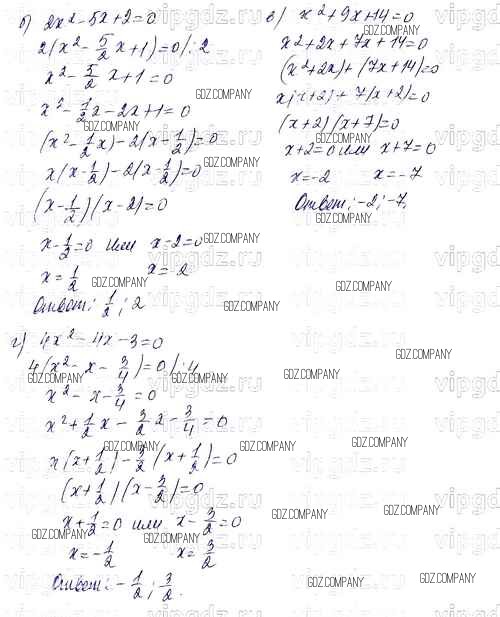 б) 2x² - 5x + 2 = 0
2(x² - 5/2 x + 1) = 0 /: 2
x² - 5/2 x + 1 = 0
x² - 1/2 x - 2x + 1 = 0
(x² - 1/2 x) - 2(x - 1/2) = 0
x(x - 1/2) - 2(x - 1/2) = 0
(x - 1/2)(x - 2) = 0
x - 1/2 = 0 или x - 2 = 0
x = 1/2 x = 2
Ответ: 1/2; 2
в) x² + 9x + 14 = 0
x² + 2x + 7x + 14 = 0
(x² + 2x) + (7x + 14) = 0
x(x + 2) + 7(x + 2) = 0
(x + 2)(x + 7) = 0
x + 2 = 0 или x + 7 = 0
x = -2 x = -7
Ответ: -2; -7.
г) 4x² - 4x - 3 = 0
4(x² - x - 3/4) = 0 /: 4
x² - x - 3/4 = 0
x² + 1/2 x - 3/2 x - 3/4 = 0
x(x + 1/2) - 3/2 (x + 1/2) = 0
(x + 1/2)(x - 3/2) = 0
x + 1/2 = 0 или x - 3/2 = 0
x = -1/2 x = 3/2
Ответ: -1/2; 3/2.
GDZ.COMPANY
vipgdz.ru